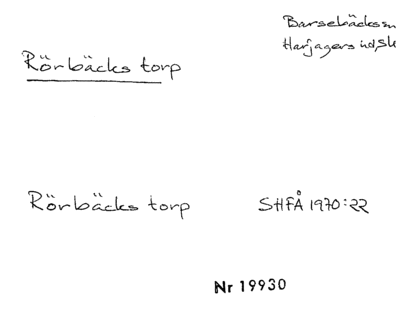 Barsebäcks sn
Harjagers hd, Sk
Rörbäcks torp
Rörbäcks torp
SHFÅ 1970:22
Nr 19930